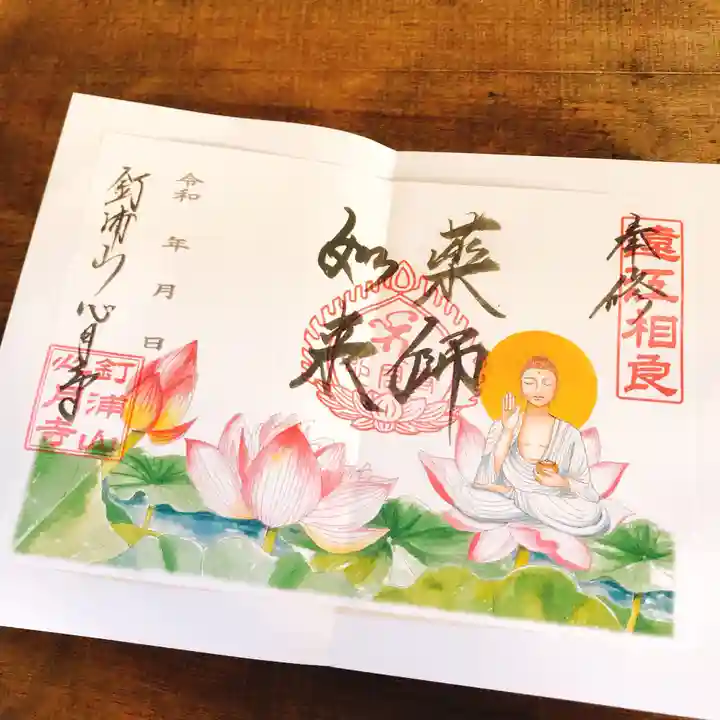 遠江相良
奉修
薬師
如来
令和 年 月 日
釘浦山 心月寺
釘浦山
心月寺